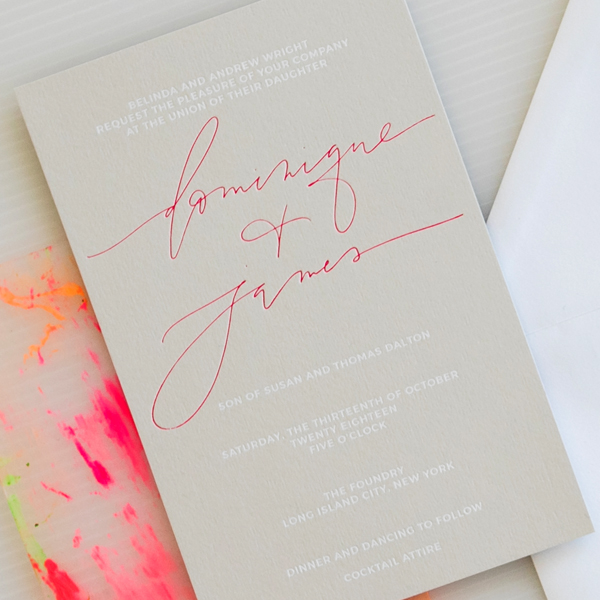 BELINDA AND ANDREW WRIGHT
REQUEST THE PLEASURE OF YOUR COMPANY
AT THE UNION OF THEIR DAUGHTER
dominique
+
James
SON OF SUSAN AND THOMAS DALTON
SATURDAY, THE THIRTEENTH OF OCTOBER
TWENTY EIGHTEEN
FIVE O'CLOCK
THE FOUNDRY
LONG ISLAND CITY, NEW YORK
DINNER AND DANCING TO FOLLOW
COCKTAIL ATTIRE